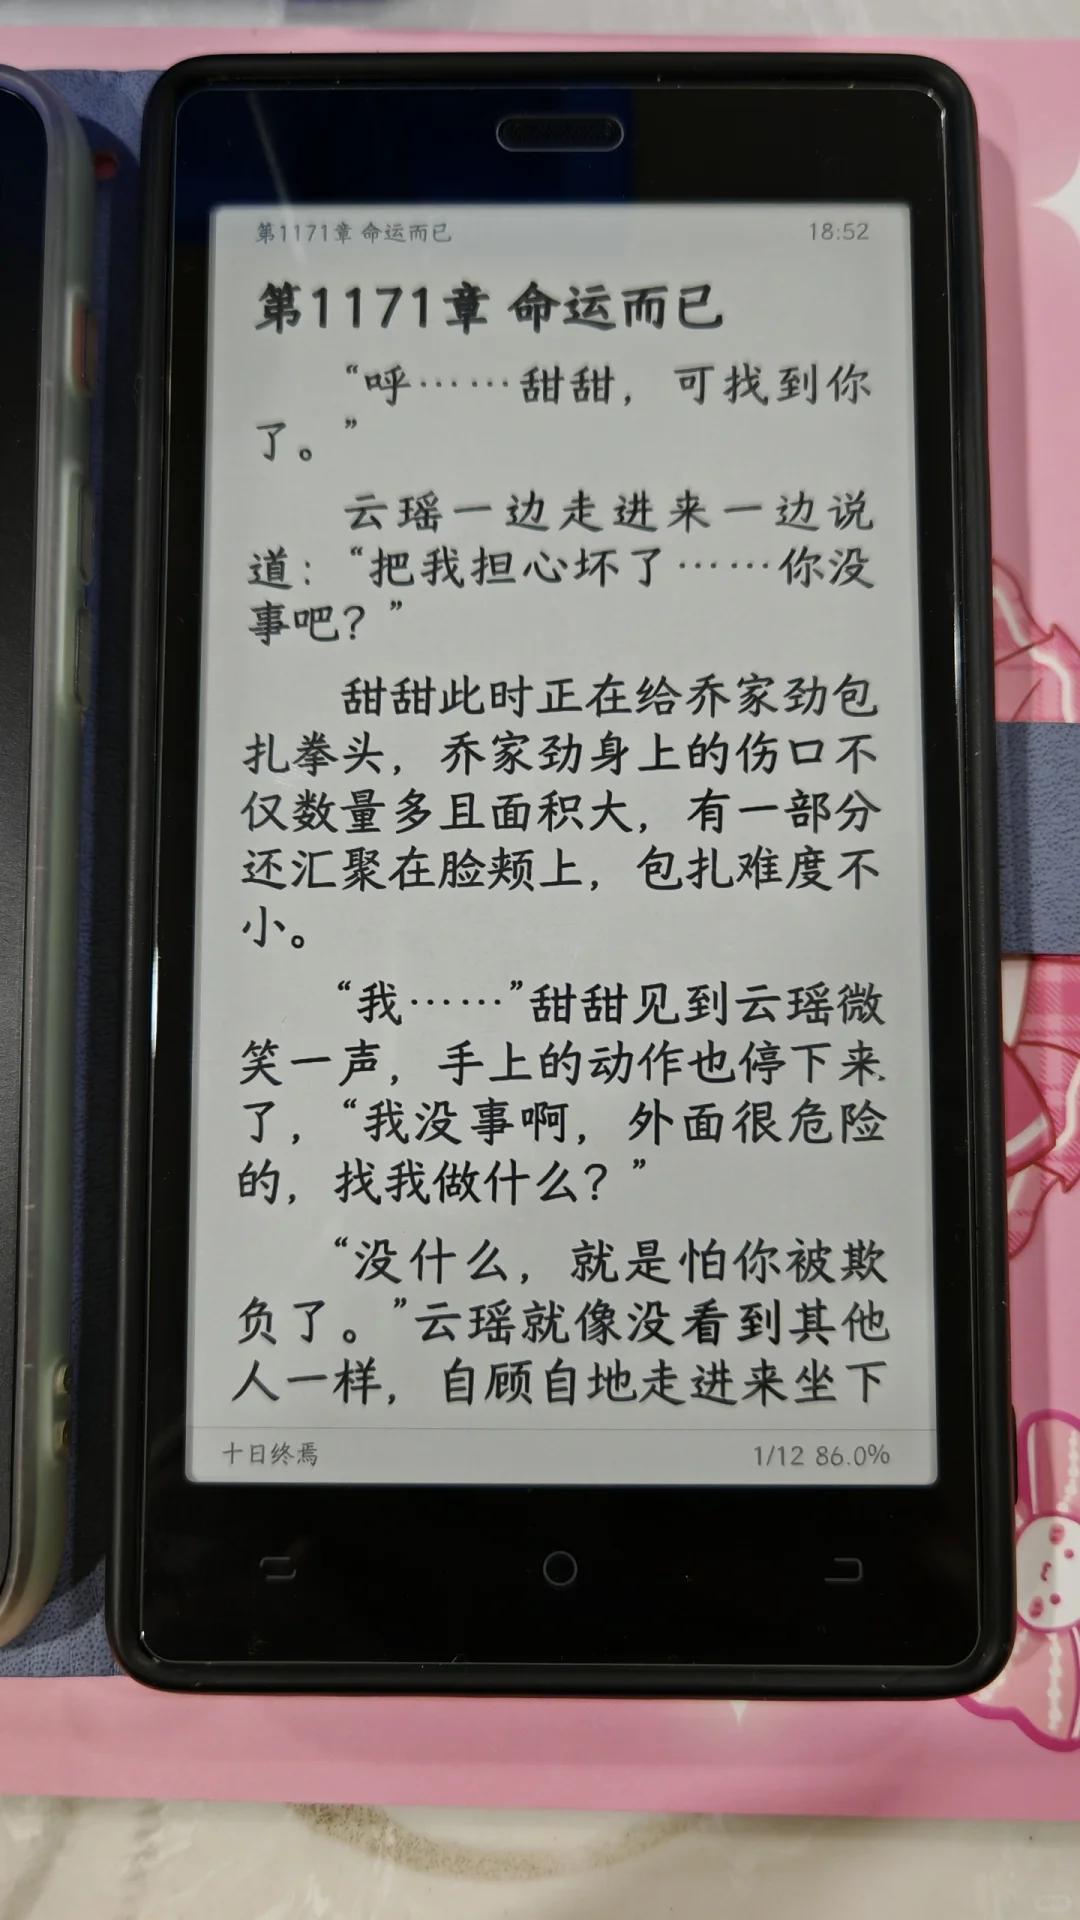 第1171章 命运而已
18:52
第1171章 命运而已
“呼……甜甜，可找到你
了。”
云瑶一边走进来一边说
道：“把我担心坏了……你没
事吧？”
甜甜此时正在给乔家劲包
扎拳头，乔家劲身上的伤口不
仅数量多且面积大，有一部分
还汇聚在脸颊上，包扎难度不
小。
“我……”甜甜见到云瑶微
笑一声，手上的动作也停下来
了，“我没事啊，外面很危险
的，找我做什么？”
“没什么，就是怕你被欺
负了。”云瑶就像没看到其他
人一样，自顾自地走进来坐下
十日终焉
1/12 86.0%